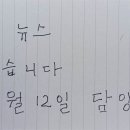 뉴스
습니다
월 12일 담양